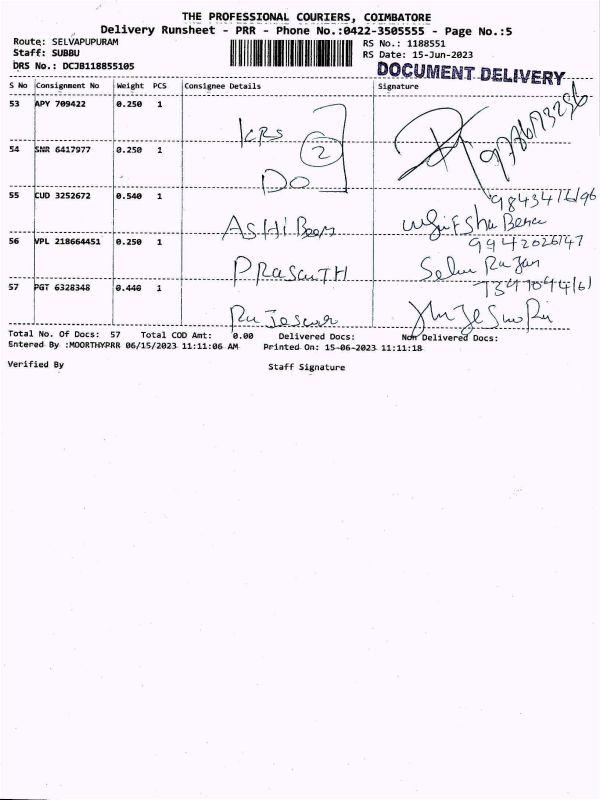 THE PROFESSIONAL COURIERS, COIMBATORE
Delivery Runsheet - PRR - Phone No.:0422-3505555 - Page No.:5
Route: SELVAPUPURAM
RS No.: 1188551
Staff: SUBBU
RS Date: 15-Jun-2023
DRS No.: DCJB118855105
DOCUMENT DELIVERY
S No Consignment No Weight PCS Consignee Details Signature
53 APY 709422 0.250 1
KRS
2
54 SNR 6417977 0.250 1
DO
55 CUD 3252672 0.540 1
ASHI Beers
56 VPL 218664451 0.250 1
9942026147
PRASANTH
57 PGT 6328348 0.440 1
Total No. Of Docs: 57 Total COD Amt: 0.00 Delivered Docs: Non Delivered Docs:
Entered By :MOORTHYPRR 06/15/2023 11:11:06 AM Printed On: 15-06-2023 11:11:18
Verified By
Staff Signature